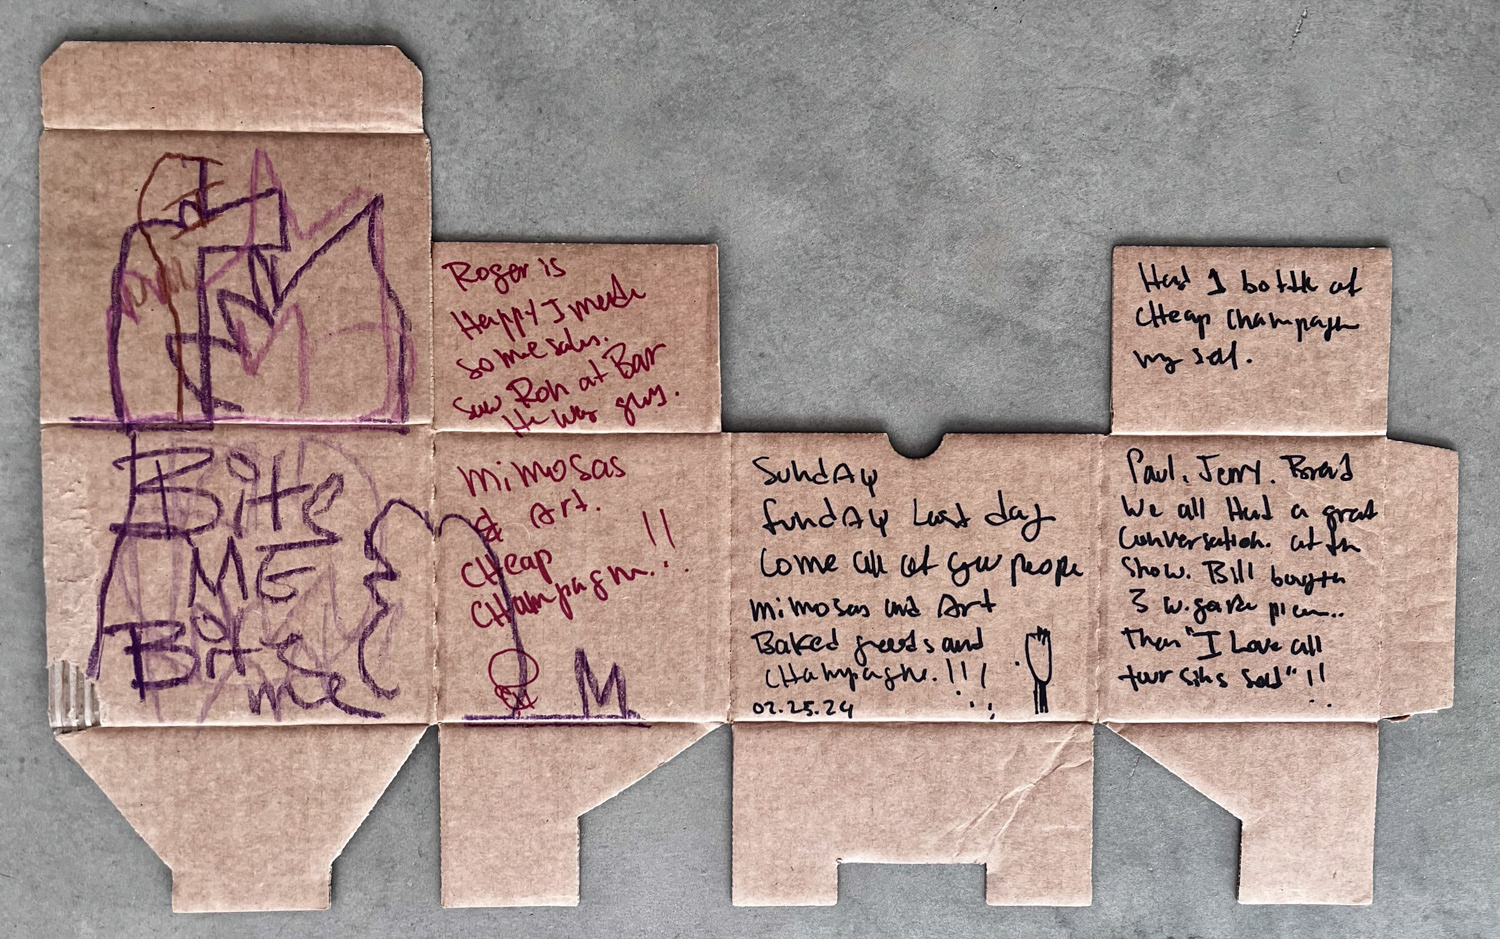 Roger is
Happy I made
some sales.
Saw Ron at Bar
He was guy.
Mimosas
& Art.
CHeap !!
CHampagn...
M
Bite
ME
Bite
me
SundAy
fundAy Last day
Come all of you people
mimosas and Art
BaKed goods and
CHampagne.!!!
02.25.24
Had 1 bottle of
CHeap Champagn
my self.
Paul, Jerry. Brad
We all Had a great
Conversation. at the
Show. Bill bought
3 piece..
Then "I Love all
four Sold"!!